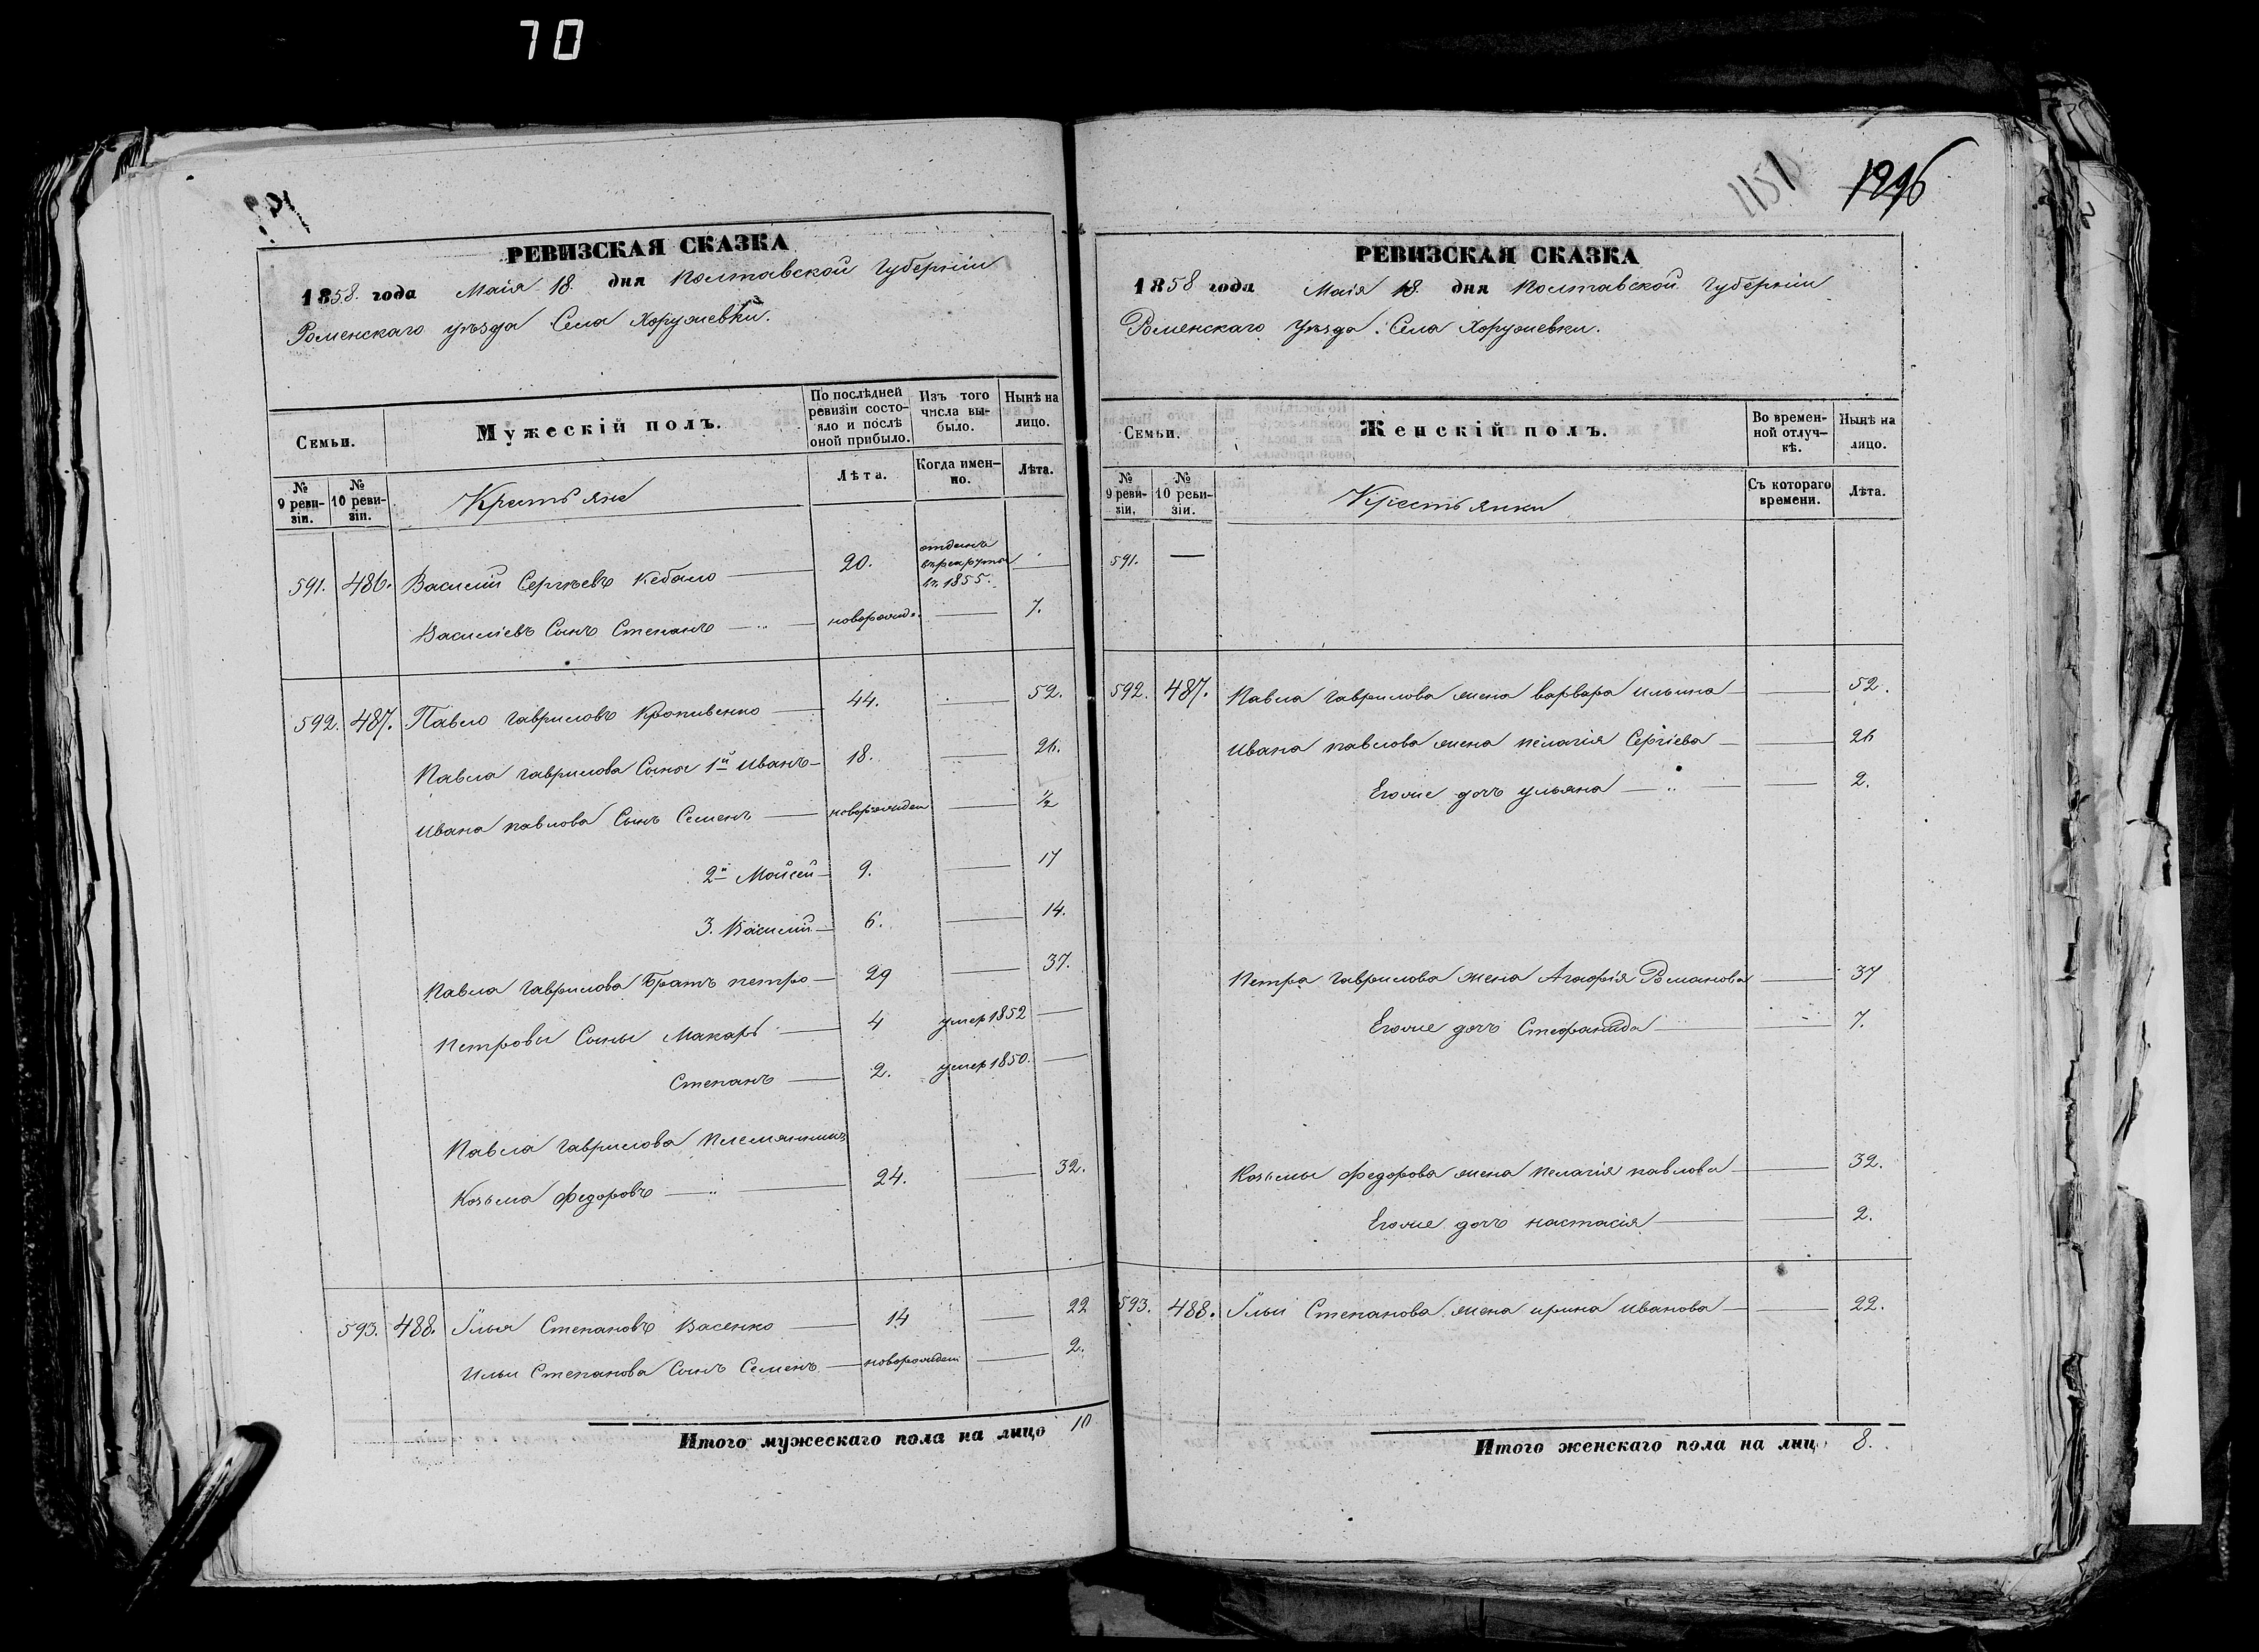 70
РЕВИЗСКАЯ СКАЗКА
1858. года Маія 18. дня Полтавской Губерніи
Роменскаго уѣзда Села Хоружевки.
Семьи.
Мужескій полъ.
По послѣдней ревизіи состояло и послѣ оной прибыло.
Изъ того числа выбыло.
Нынѣ на лицо.
№ 9 ревизіи.
№ 10 ревизіи.
Крестьяне
Лѣта.
Когда именно.
Лѣта.
591. 486. Василій Сергѣевъ Кебало 20. отданъ в рекруты в. 1855.
Василіевъ Сынъ Степанъ — „ — новорожд. — 7.
592. 487. Павло Гавриловъ Кропивенко — 44. — 52.
Павла Гаврилова Сыны 1й Иванъ — 18. — 26.
Ивана Павлова Сынъ Семенъ — новорожден — ½
2й Мойсей — 9. — 17
3. Василий — 6. — 14.
Павла Гаврилова Братъ петро — 29 — 37.
Петровы Сыны Макаръ — 4 умер 1852 —
Степанъ — 2. умер 1850. —
Павла Гаврилова племянникъ
Козьма Федоровъ — „ — 24. — 32.
593. 488. Илья Степановъ Васенко — 14 — 22
Ильи Степанова Сынъ Семенъ — новорожден — 2.
Итого мужескаго пола на лицо 10
1151
1296
РЕВИЗСКАЯ СКАЗКА
1858 года Маія 18. дня Полтавской Губерніи
Роменскаго Уѣзда. Села Хоружевки.
Семьи.
Женскій полъ.
Во временной отлучкѣ.
Нынѣ на лицо.
№ 9 ревизіи.
№ 10 ревизіи.
Крестьянки
Съ котораго времени.
Лѣта.
591. —
592. 487. Павла Гаврилова жена варвара Ильина — 52.
Ивана павлова жена пелагія Сергіева — 26
Егоже дочь ульяна — „ — 2.
Петра Гаврилова жена Агафія Романова — 37
Егоже дочь Стефанида — 7.
Козьмы Федорова жена пелагія павлова — 32.
Егоже дочь настасія — 2.
593. 488. Ильи Степанова жена ирина иванова — 22.
Итого женскаго пола на лицо 8.